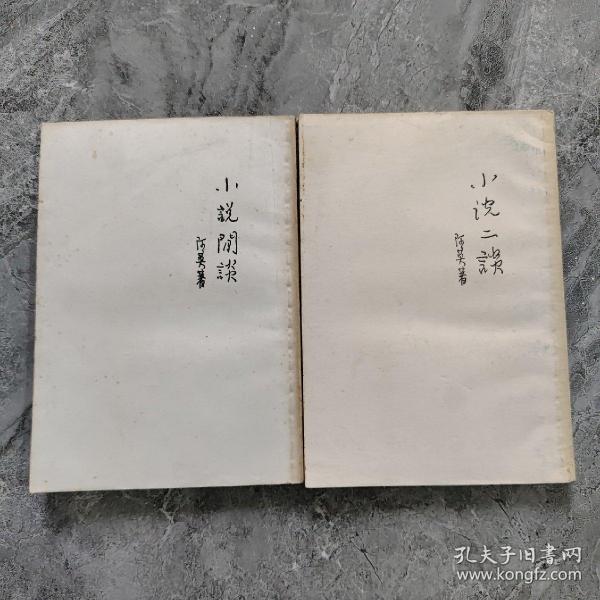 小説閒談
阿英著
小说二談
阿英著
孔夫子旧书网
www.kongfz.com